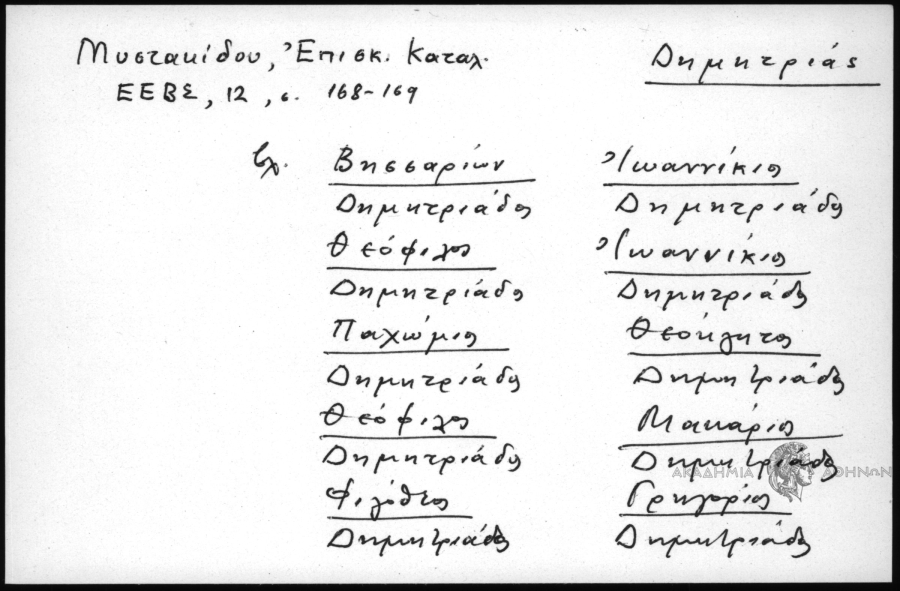 Μυστακίδου, Ἐπισκ. Καταλ.
ΕΕΒΣ, 12, σ. 168-169
Δημητριάς
βλ.
Βησσαρίων
Δημητριάδος
Θεόφιλος
Δημητριάδος
Παχώμιος
Δημητριάδος
Θεόφιλος
Δημητριάδος
Φιλόθεος
Δημητριάδος
Ἰωαννίκιος
Δημητριάδος
Ἰωαννίκιος
Δημητριάδος
Θεόκλητος
Δημητριάδος
Μακάριος
Δημητριάδος
Γρηγόριος
Δημητριάδος
ΑΚΑΔΗΜΙΑ ΑΘΗΝΩΝ